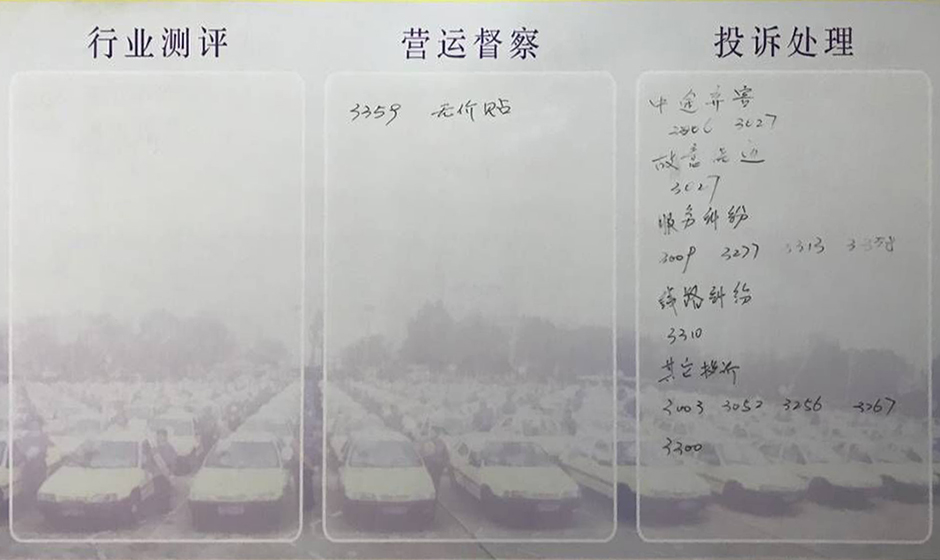 行业测评
营运督察
3359 无价贴
投诉处理
中途弃客
2806 3027
故意
3027
服务纠纷
3009 3277 3313
线路纠纷
3310
其它投诉
3003 3052 3256 3267
3300